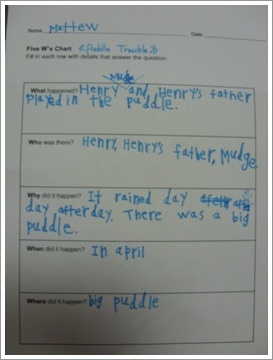 Name Mattew Date
Five W's Chart <Puddle Trouble>
Fill in each row with details that answer the question.
Mudge
What happened? Henry and Henry's father
played in the puddle.
Who was there? Henry, Henry's father, Mudge
Why did it happen? It rained day
day after day. There was a big
puddle.
When did it happen? In april
Where did it happen? big puddle